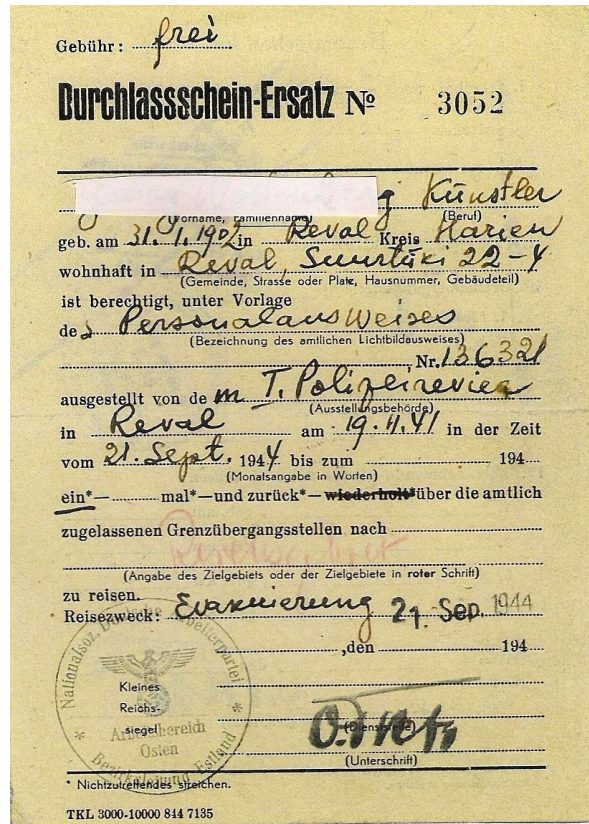 Gebühr: frei
Durchlassschein-Ersatz № 3052
Künstler
(Vorname, Familienname) (Beruf)
geb. am 31.1.1902 in Reval Kreis Harien
wohnhaft in Reval, 22-4
(Gemeinde, Strasse oder Platz, Hausnummer, Gebäudeteil)
ist berechtigt, unter Vorlage
des Personalausweises
(Bezeichnung des amtlichen Lichtbildausweises)
Nr. 136321
ausgestellt von dem I. Polizeirevier
(Ausstellungsbehörde)
in Reval am 19.11.41 in der Zeit
vom 21. Sept. 1944 bis zum 194
(Monatsangabe in Worten)
ein*— mal*—und zurück*—wiederholt* über die amtlich
zugelassenen Grenzübergangsstellen nach
(Angabe des Zielgebiets oder der Zielgebiete in roter Schrift)
zu reisen.
Reisezweck: Evakuierung 21. Sep. 1944
,den 194
Kleines
Reichs-
siegel
(Dienststelle)
(Unterschrift)
Nationalsoz. Deutsche Arbeiterpartei
Arbeitsbereich
Osten
Bezirksleitung Estland
* Nichtzutreffendes streichen.
TKL 3000-10000 844 7135